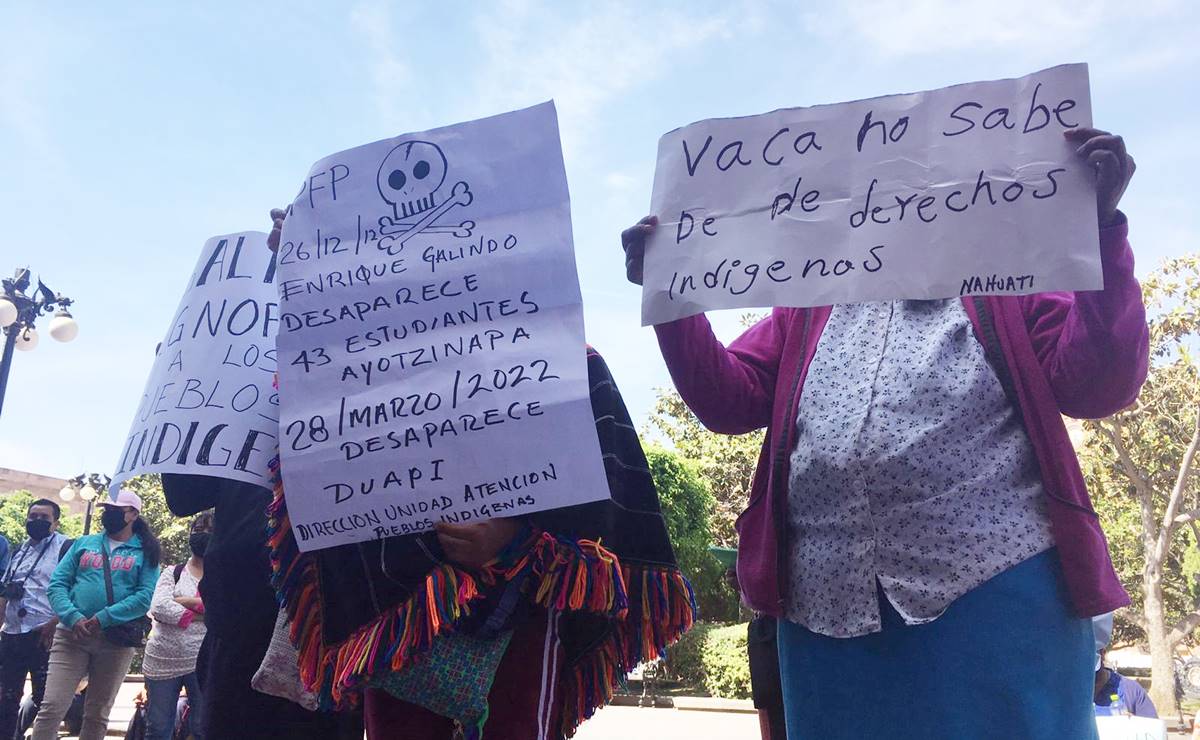 AL
IGNOR
A LOS
PUEBLOS
INDIGE
PFP
26/12/12
ENRIQUE GALINDO
DESAPARECE
43 ESTUDIANTES
AYOTZINAPA
28/MARZO/2022
DESAPARECE
DUAPI
DIRECCION UNIDAD ATENCION
PUEBLOS INDIGENAS
Vaca no sabe
De De derechos
Indigenas
NAHUATI